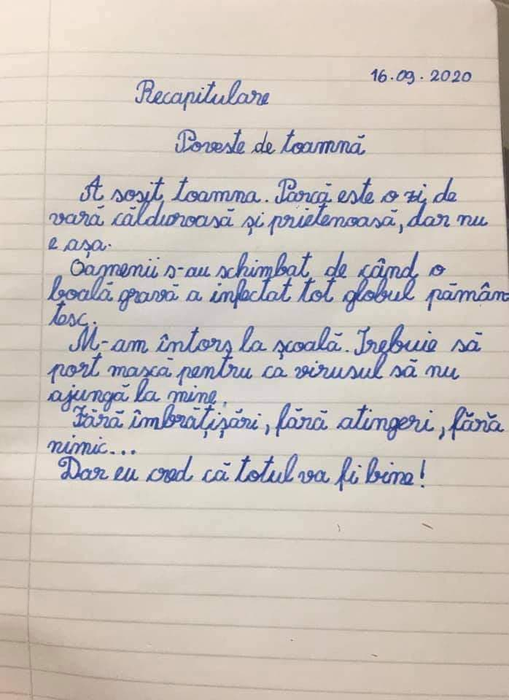 16.09.2020
Recapitulare
Poveste de toamnă
A sosit toamna. Parcă este o zi de
vară călduroasă și prietenoasă, dar nu
e așa.
Oamenii s-au schimbat de când o
boală gravă a infectat tot globul pămân
tesc.
M-am întors la școală. Trebuie să
port mască pentru ca virusul să nu
ajungă la mine.
Fără îmbrățișări, fără atingeri, fără
nimic...
Dar eu cred că totul va fi bine!